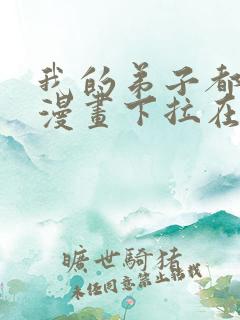 我的弟子都
漫畫下拉在
曠世騎猪
未任同意禁止轉載